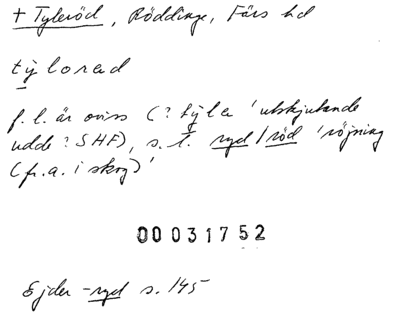 + Tyleröd, Röddinge, Färs hd
tylorad
f.l. är oviss (? tyle 'utskjutande
udde? SHF), s.l. ryd/röd 'röjning
(fr.a. i skog)'
00031752
Ejder -ryd s. 145